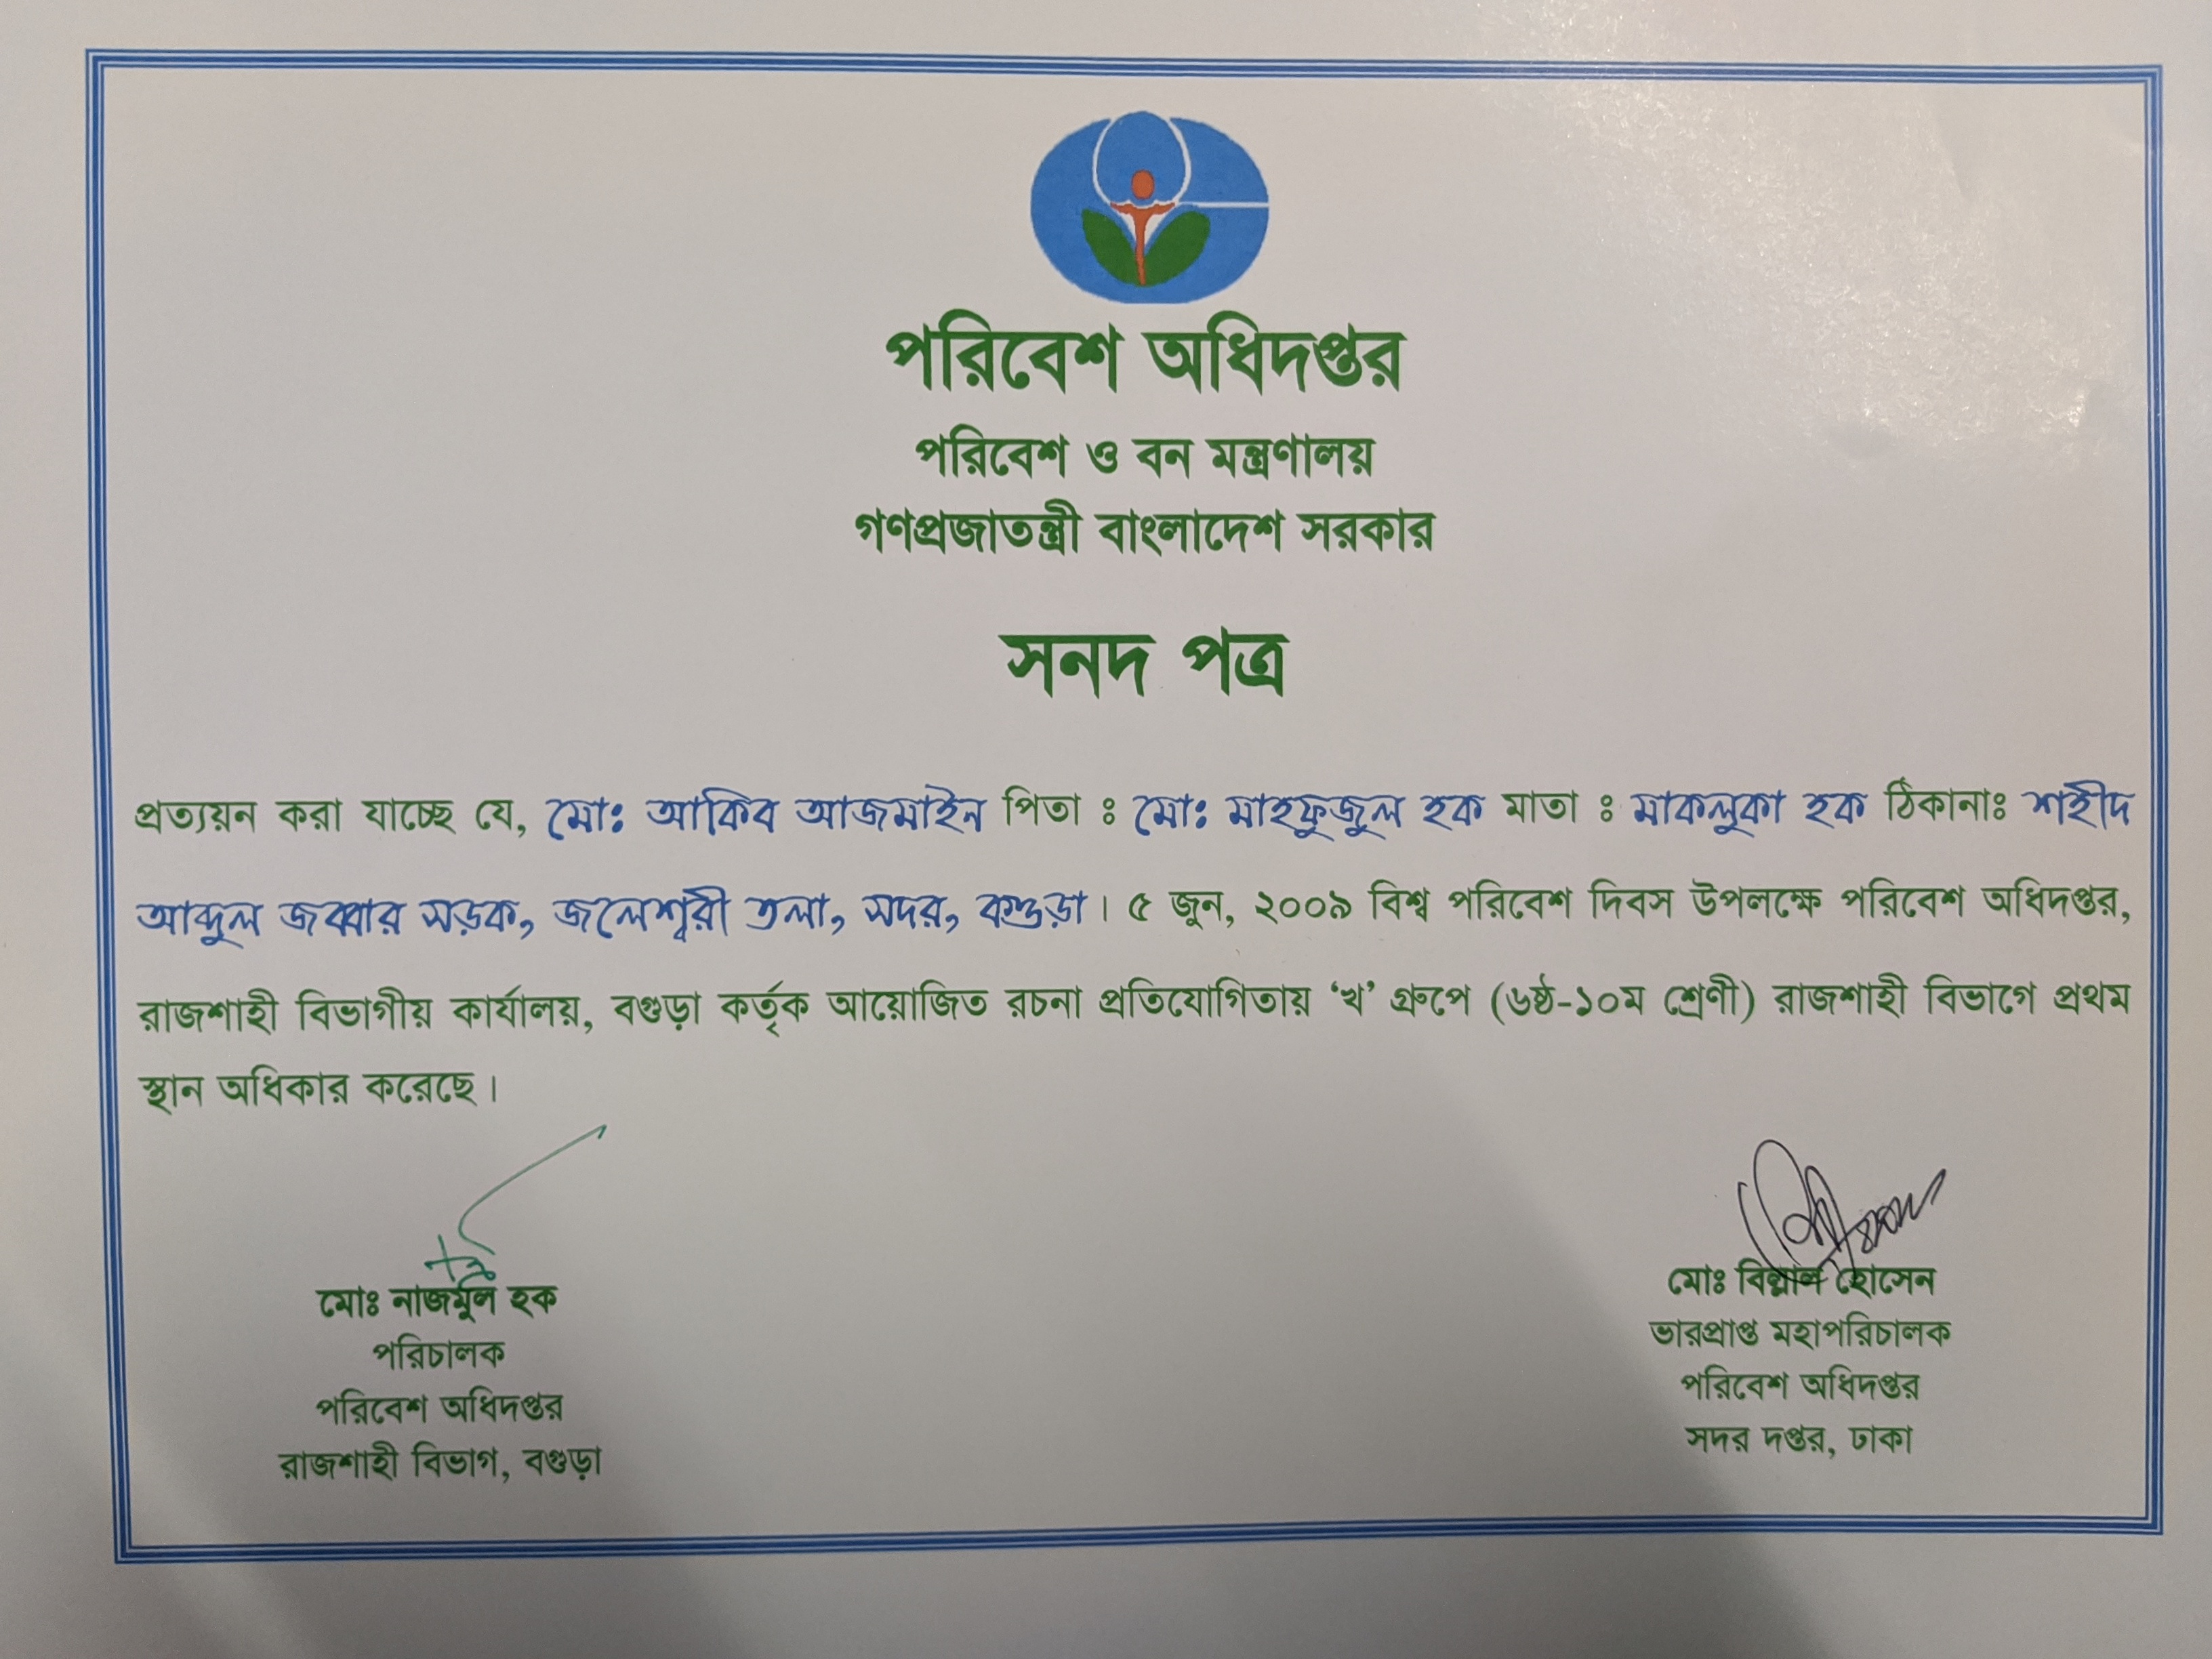 পরিবেশ অধিদপ্তর
পরিবেশ ও বন মন্ত্রণালয়
গণপ্রজাতন্ত্রী বাংলাদেশ সরকার
সনদ পত্র
প্রত্যয়ন করা যাচ্ছে যে, মোঃ আকিব আজমাইন পিতা ঃ মোঃ মাহফুজুল হক মাতা ঃ মাকলুকা হক ঠিকানাঃ শহীদ
আব্দুল জব্বার সড়ক, জলেশ্বরী তলা, সদর, বগুড়া। ৫ জুন, ২০০৯ বিশ্ব পরিবেশ দিবস উপলক্ষে পরিবেশ অধিদপ্তর,
রাজশাহী বিভাগীয় কার্যালয়, বগুড়া কর্তৃক আয়োজিত রচনা প্রতিযোগিতায় ‘খ’ গ্রুপে (৬ষ্ঠ-১০ম শ্রেণী) রাজশাহী বিভাগে প্রথম
স্থান অধিকার করেছে।
মোঃ নাজমুল হক
পরিচালক
পরিবেশ অধিদপ্তর
রাজশাহী বিভাগ, বগুড়া
মোঃ বিল্লাল হোসেন
ভারপ্রাপ্ত মহাপরিচালক
পরিবেশ অধিদপ্তর
সদর দপ্তর, ঢাকা